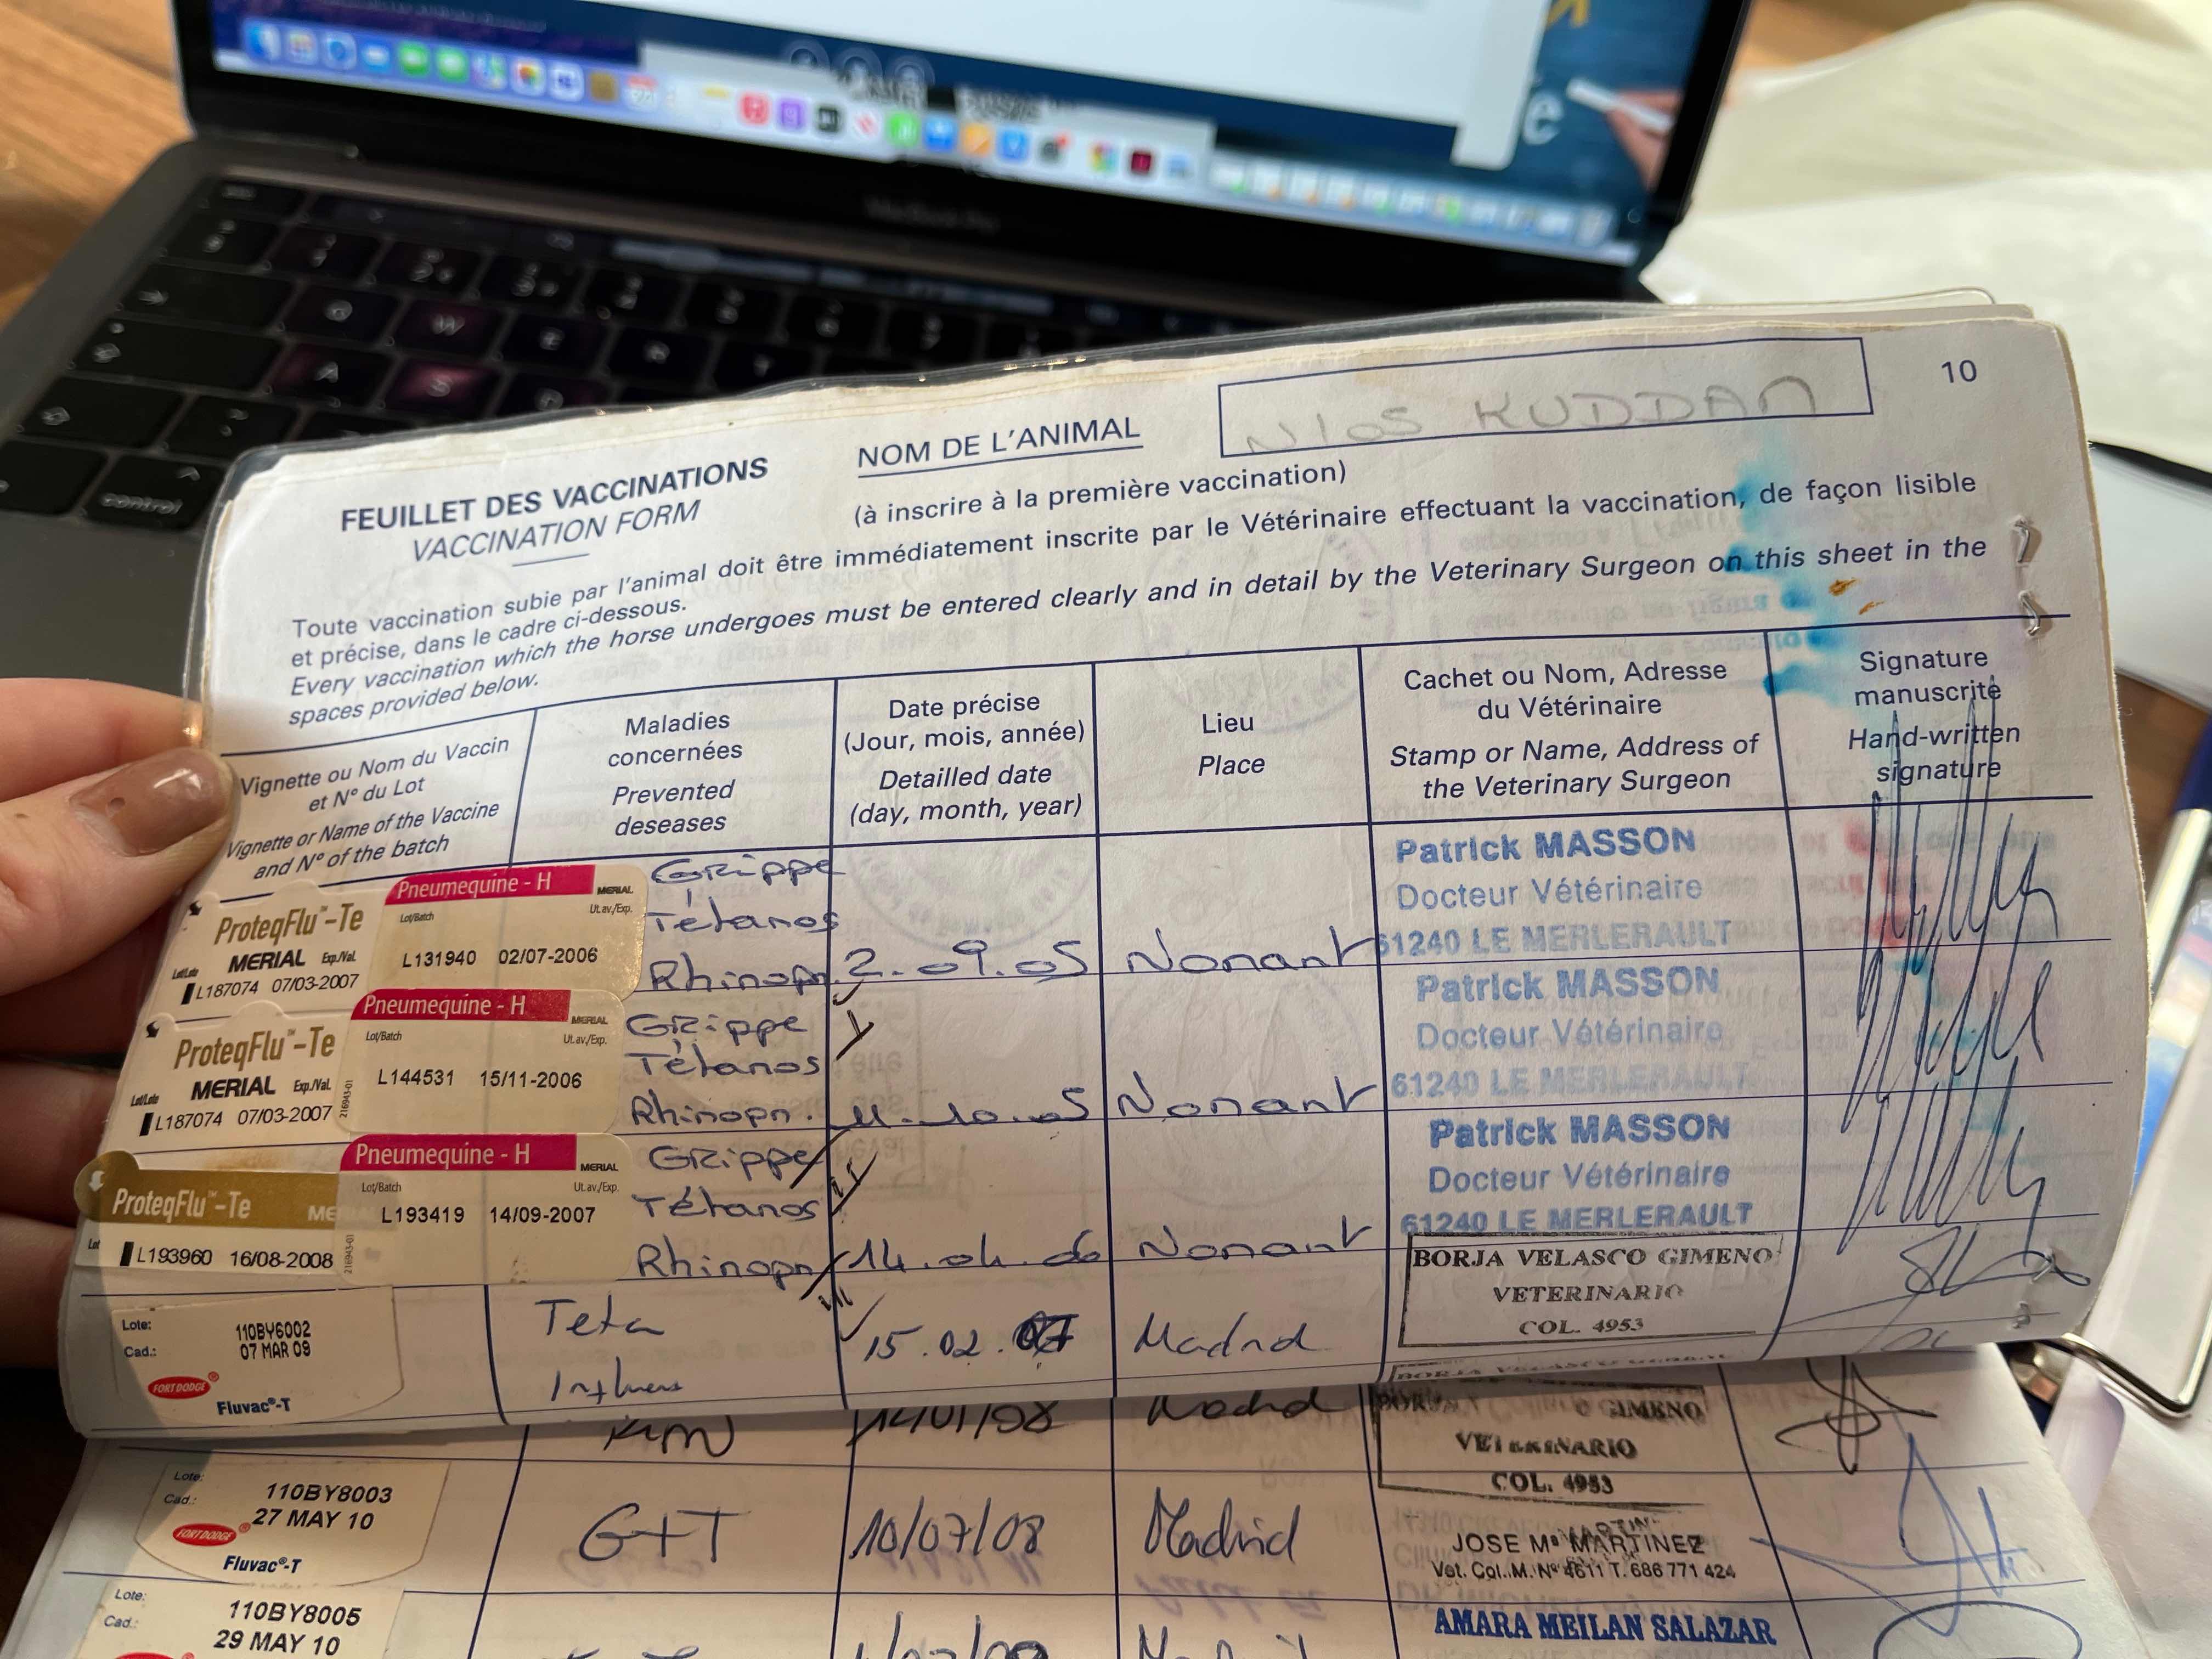 MacBook Pro
control
10
NOM DE L'ANIMAL
NIOS KUDDAM
(à inscrire à la première vaccination)
FEUILLET DES VACCINATIONS
VACCINATION FORM
Toute vaccination subie par l'animal doit être immédiatement inscrite par le Vétérinaire effectuant la vaccination, de façon lisible
et précise, dans le cadre ci-dessous.
Every vaccination which the horse undergoes must be entered clearly and in detail by the Veterinary Surgeon on this sheet in the
spaces provided below.
Vignette ou Nom du Vaccin
et N° du Lot
Vignette or Name of the Vaccine
and N° of the batch
Maladies
concernées
Prevented
deseases
Date précise
(Jour, mois, année)
Detailled date
(day, month, year)
Lieu
Place
Cachet ou Nom, Adresse
du Vétérinaire
Stamp or Name, Address of
the Veterinary Surgeon
Signature
manuscrite
Hand-written
signature
ProteqFlu™-Te
MERIAL Exp./Val.
Lot/Lote
L187074 07/03-2007
Pneumequine - H
MERIAL
Lot/Batch Ut.av./Exp.
L131940 02/07-2006
Grippe
Tétanos
Rhinopn.
2.09.05
Nonant
Patrick MASSON
Docteur Vétérinaire
61240 LE MERLERAULT
ProteqFlu™-Te
MERIAL Exp./Val.
Lot/Lote
L187074 07/03-2007
216943-01
Pneumequine - H
MERIAL
Lot/Batch Ut.av./Exp.
L144531 15/11-2006
Grippe
Tétanos
Rhinopn.
11.10.05
Nonant
Patrick MASSON
Docteur Vétérinaire
61240 LE MERLERAULT
ProteqFlu™-Te
ME
Lot
L193960 16/08-2008
216943-01
Pneumequine - H
MERIAL
Lot/Batch Ut.av./Exp.
L193419 14/09-2007
Grippe
Tétanos
Rhinopn
14.04.06
Nonant
Patrick MASSON
Docteur Vétérinaire
61240 LE MERLERAULT
Lote: 110BY6002
Cad.: 07 MAR 09
FORT DODGE®
Fluvac®-T
Teta
15.02.07
Madrid
BORJA VELASCO GIMENO
VETERINARIO
COL. 4953
14/01/08
Madrid
GIMENO
VETERINARIO
COL. 4953
Lote: 110BY8003
Cad.: 27 MAY 10
FORT DODGE®
Fluvac®-T
G+T
10/07/08
Madrid
JOSE Mª MARTINEZ
Vet. Col. M. Nº 4611 T. 686 771 424
Lote: 110BY8005
Cad.: 29 MAY 10
AMARA MEILAN SALAZAR